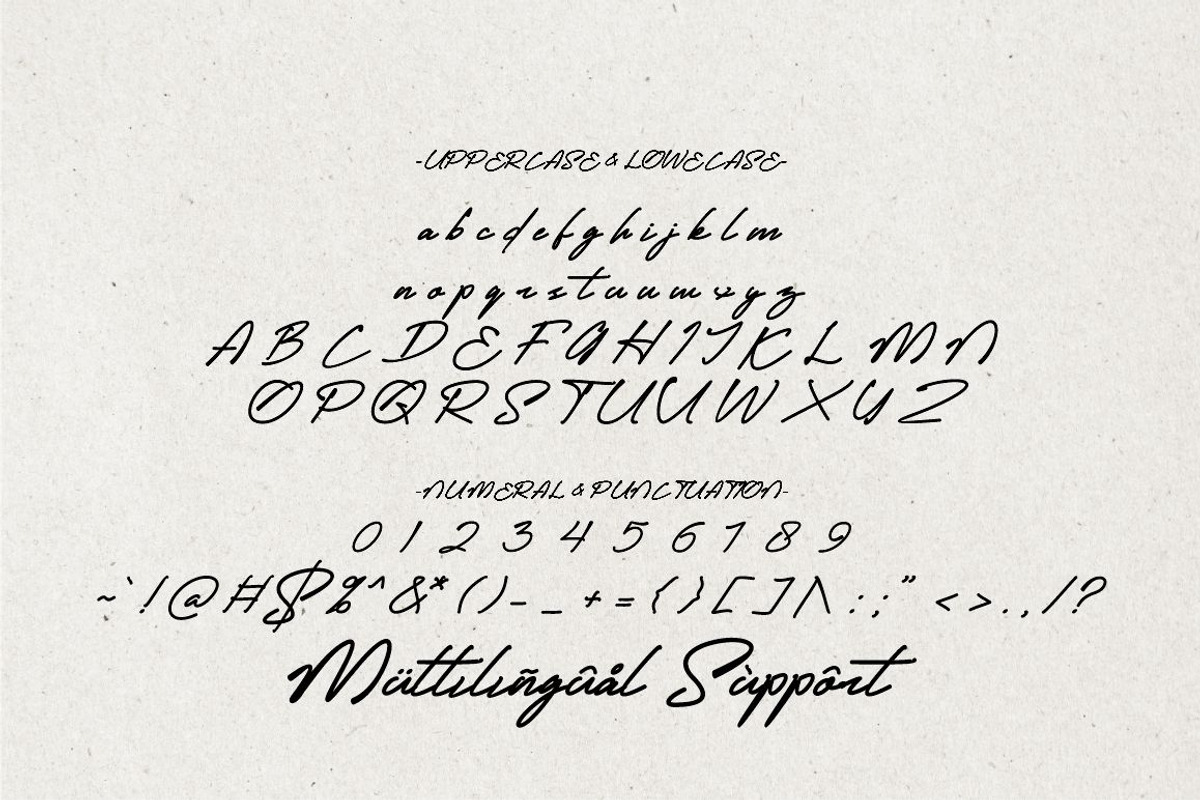 -UPPERCASE & LOWECASE-
a b c d e f g h i j k l m
n o p q r s t u u w x y z
A B C D E F G H I J K L M N
O P Q R S T U U W X Y Z
-NUMERAL & PUNCTUATION-
0 1 2 3 4 5 6 7 8 9
~ ` ! @ # $ % ^ & * ( ) - _ + = { } [ ] | \ : ; " < > . , / ?
Müttiliñgûål Sùppôrt